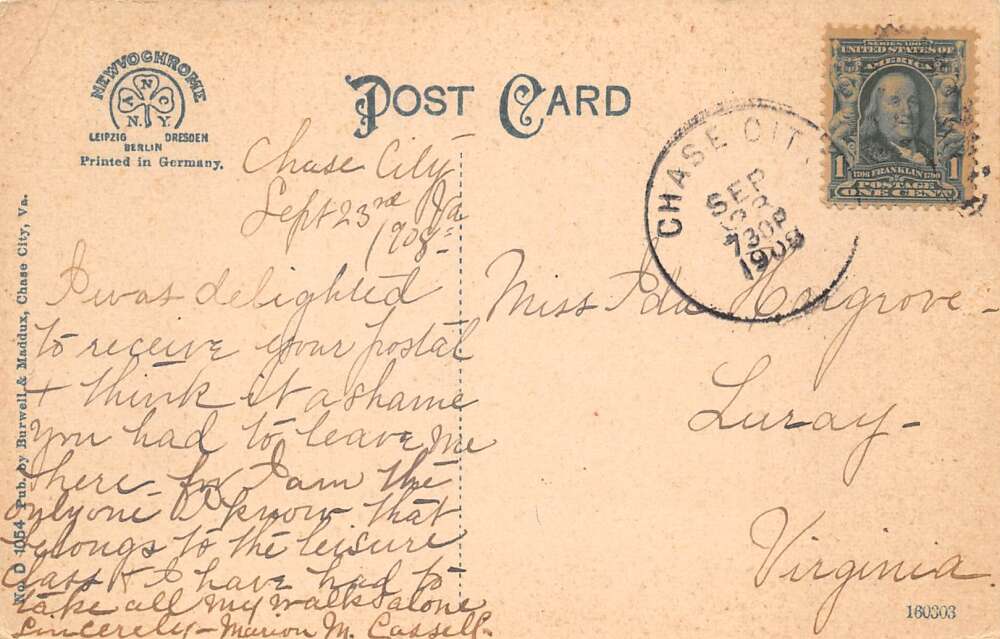 NEWVOCHROME
A N C
N. Y.
LEIPZIG DRESDEN
BERLIN
Printed in Germany.
POST CARD
SERIES 1902
UNITED STATES OF
AMERICA
1 1
1706 FRANKLIN 1790
POSTAGE
ONE CENT
CHASE CIT
SEP
23
730P
1908
No. D 1054 Pub. by Burwell & Maddux, Chase City, Va.
Chase City
Sept 23rd Va
1908
I was delighted
to receive your postal
+ think it a shame
you had to leave me
here - for I am the
only one I know that
belongs to the leisure
class & I have had to
take all my walks alone
Sincerely - Marion M. Cassell.
Miss Ida Hargrove -
Luray -
Virginia.
160303